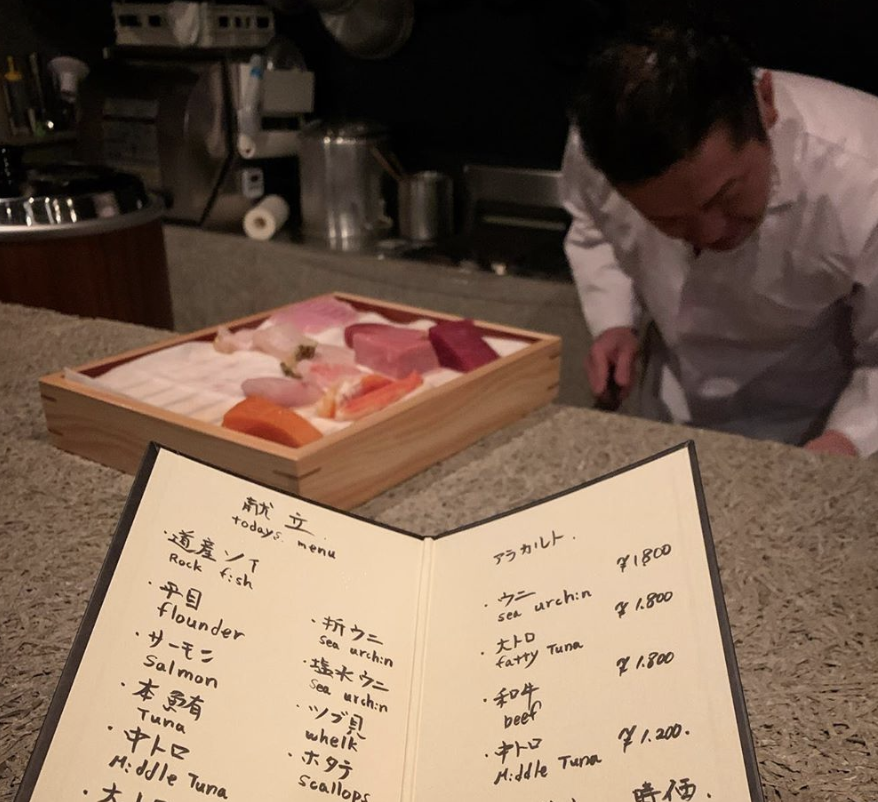 献立.
todays. menu
・道産ソイ
Rock fish
・平目
flounder
・サーモン
Salmon
・本鮪
Tuna
・中トロ
Middle Tuna
・大トロ
・折ウニ
sea urchin
・塩水ウニ
Sea urchin
・ツブ貝
whelk
・ホタテ
Scallops
アラカルト.
¥1800
・ウニ
sea urchin
¥1.800
・大トロ
fatty Tuna
¥1.800
・和牛
beef
・中トロ
Middle Tuna
¥1.200.
時価.